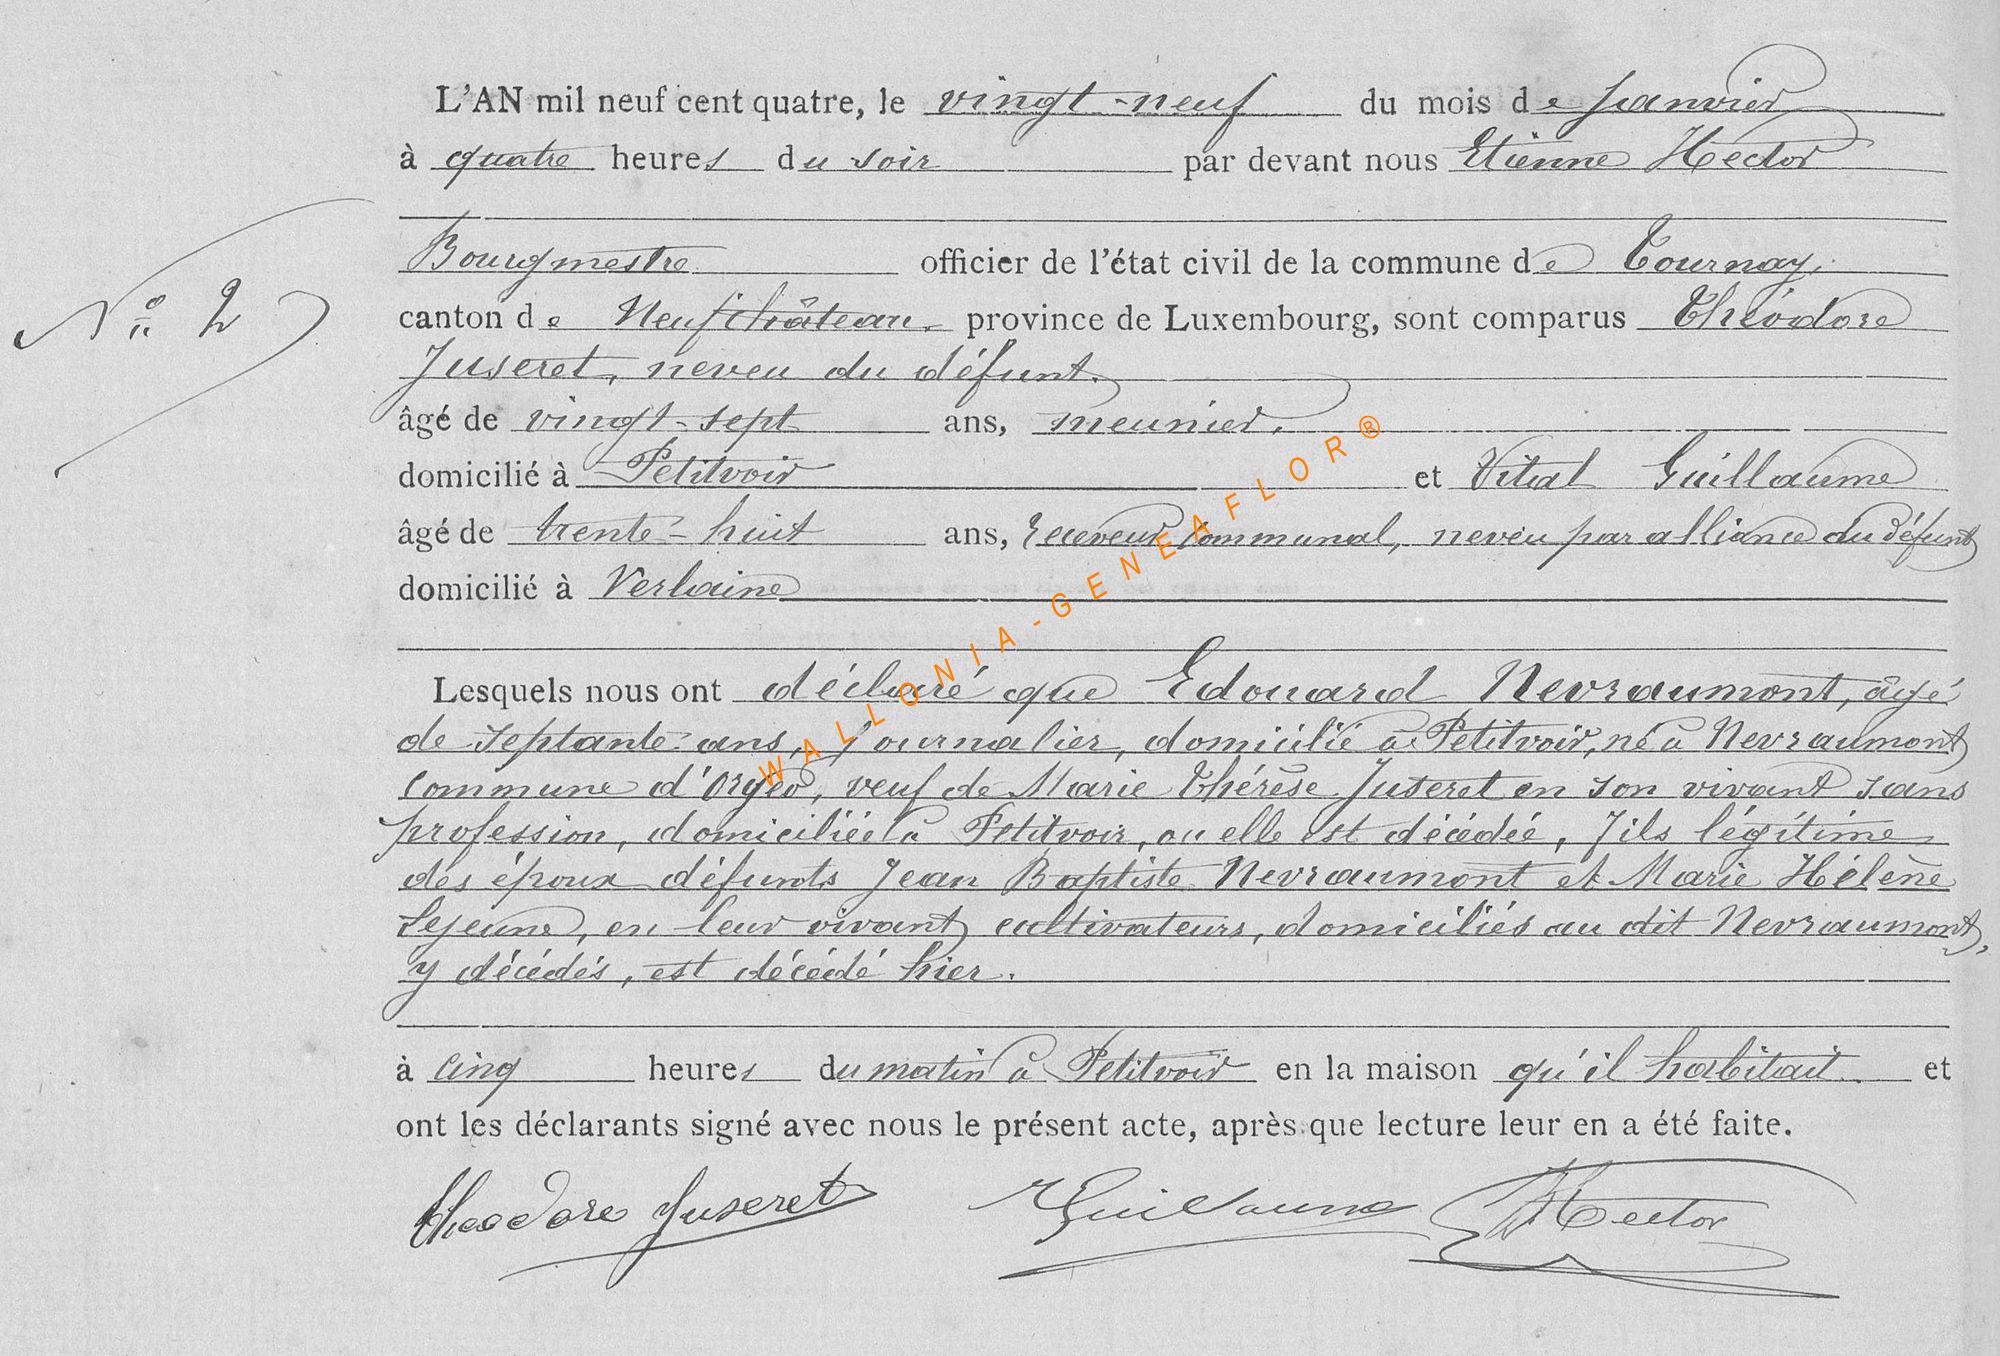 L'AN mil neuf cent quatre, le vingt-neuf du mois de Janvier
à quatre heures du soir par devant nous Etienne Hector
Bourgmestre officier de l'état civil de la commune de Tournay,
N° 2
canton de Neufchâteau, province de Luxembourg, sont comparus Théodore
Juseret, neveu du défunt.
âgé de vingt-sept ans, meunier,
domicilié à Petitvoir et Vital Guillaume
âgé de trente-huit ans, receveur communal, neveu par alliance du défunt
domicilié à Verlaine
WALLONIA-GENEAFLOR®
Lesquels nous ont déclaré que Edouard Nevraumont, âgé
de septante ans, journalier, domicilié à Petitvoir, né à Nevraumont
commune d'Orgeo, veuf de Marie Thérèse Juseret en son vivant sans
profession, domiciliée à Petitvoir, ou elle est décédée, fils légitime
des époux défunts Jean Baptiste Nevraumont et Marie Hélène
Lejeune, en leur vivant cultivateurs, domiciliés au dit Nevraumont,
y décédés, est décédé hier.
à cinq heures du matin à Petitvoir en la maison qu'il habitait et
ont les déclarants signé avec nous le présent acte, après que lecture leur en a été faite.
Theodore Juseret VGuillaume EHector